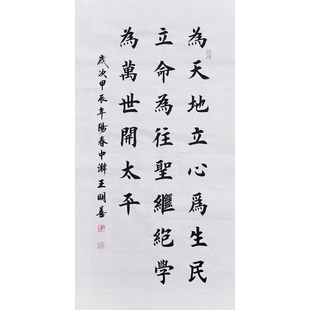 為天地立心為生民
立命為往聖繼絕學
為萬世開太平
歲次甲辰年陽春中澣王明善